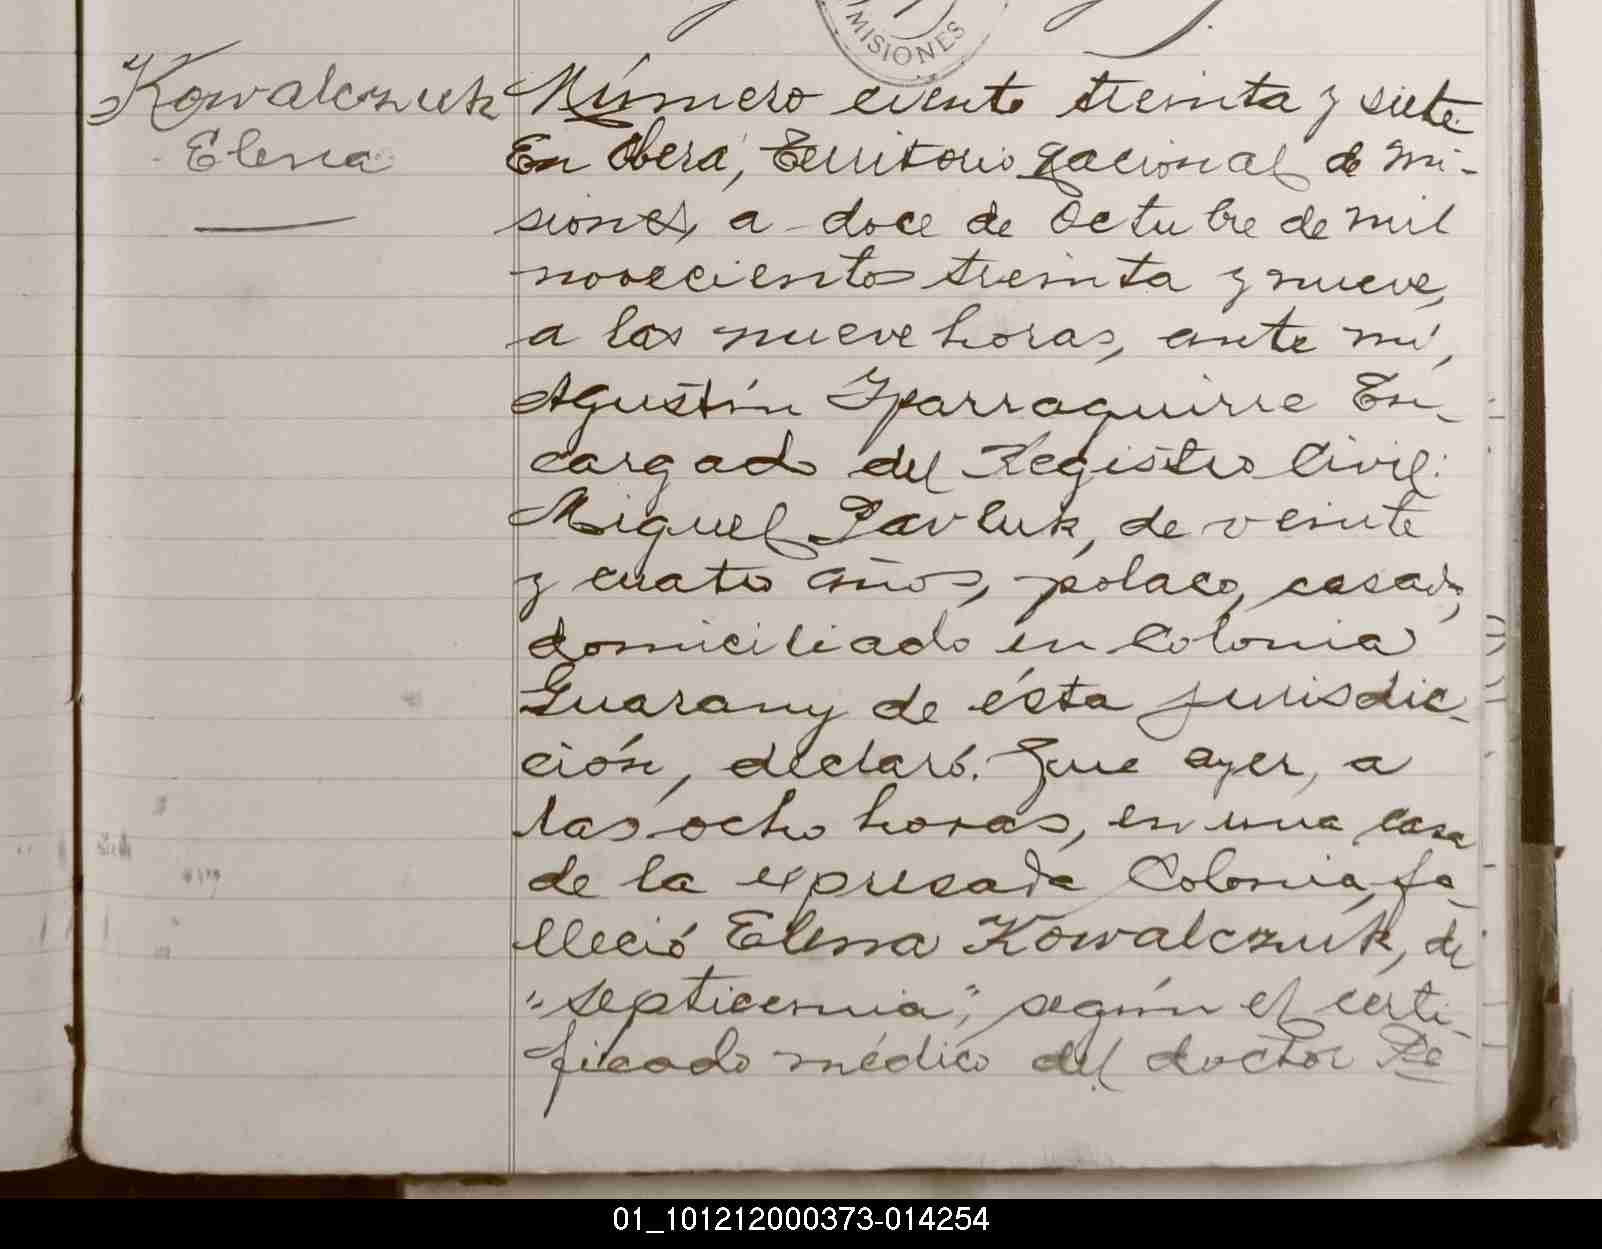 MISIONES
Kowalczuk
Elena
Número ciento treinta y siete.
En Oberá, Territorio Nacional de Mi-
siones, a doce de Octubre de mil
novecientos treinta y nueve,
a las nueve horas, ante mí,
Agustín Yparraguirre En-
cargado del Registro Civil:
Miguel Pavluk, de veinte
y cuatro años, polaco, casado,
domiciliado en Colonia
Guarany de ésta jurisdic-
ción, declaró: Que ayer, a
las ocho horas, en una casa
de la expresada Colonia, fa-
lleció Elena Kowalczuk, de
"septicemia", según el certi-
ficado médico del doctor Re
01_101212000373-014254